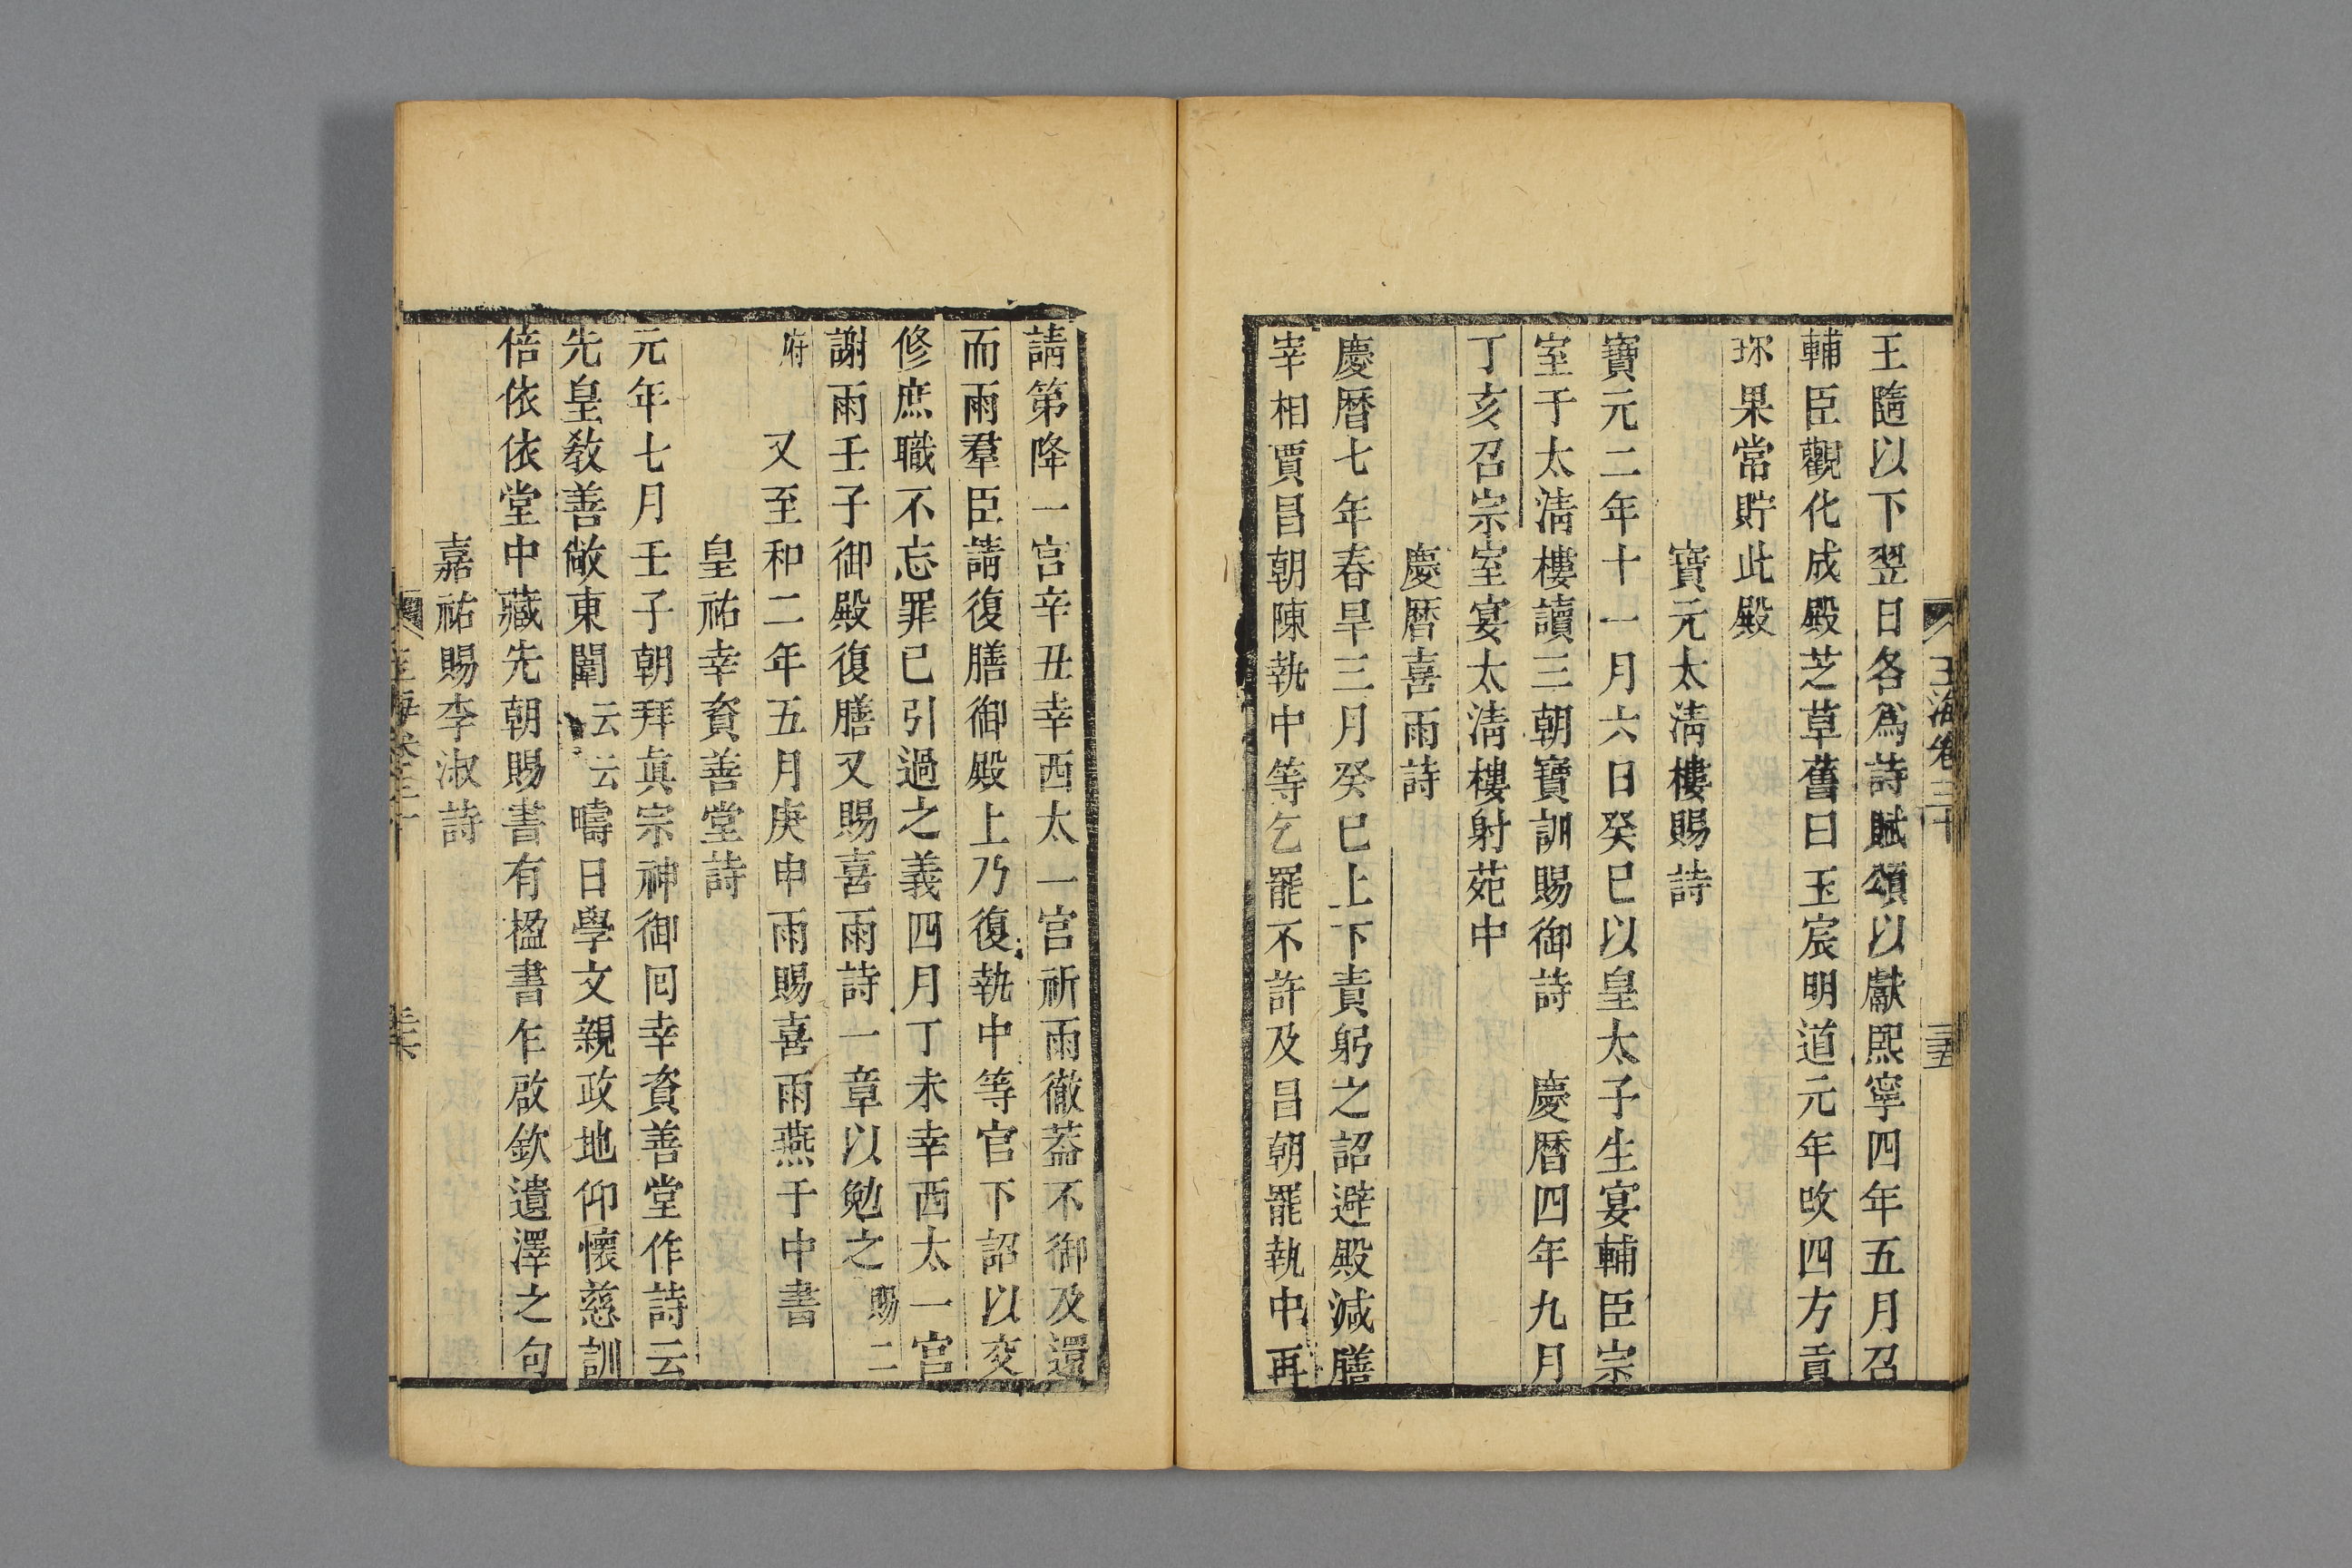 玉海卷三十
三五
王隨以下翌日各爲詩賦頌以獻熙寧四年五月召
輔臣觀化成殿芝草舊曰玉宸明道元年改四方貢
珎果常貯此殿
寶元太淸樓賜詩
寶元二年十一月六日癸巳以皇太子生宴輔臣宗
室于太淸樓讀三朝寶訓賜御詩　慶曆四年九月
丁亥召宗室宴太淸樓射苑中
慶曆喜雨詩
慶曆七年春旱三月癸巳上下責躬之詔避殿減膳
宰相賈昌朝陳執中等乞罷不許及昌朝罷執中再
請第降一官辛丑幸西太一宮祈雨徹葢不御及還
而雨羣臣請復膳御殿上乃復執中等官下詔以交
修庶職不忘罪已引過之義四月丁未幸西太一宮
謝雨壬子御殿復膳又賜喜雨詩一章以勉之賜二
府　又至和二年五月庚申雨賜喜雨燕于中書
皇祐幸資善堂詩
元年七月壬子朝拜眞宗神御囘幸資善堂作詩云
先皇敎善敞東闈云云疇日學文親政地仰懷慈訓
倍依依堂中藏先朝賜書有楹書乍啟欽遺澤之句
嘉祐賜李淑詩